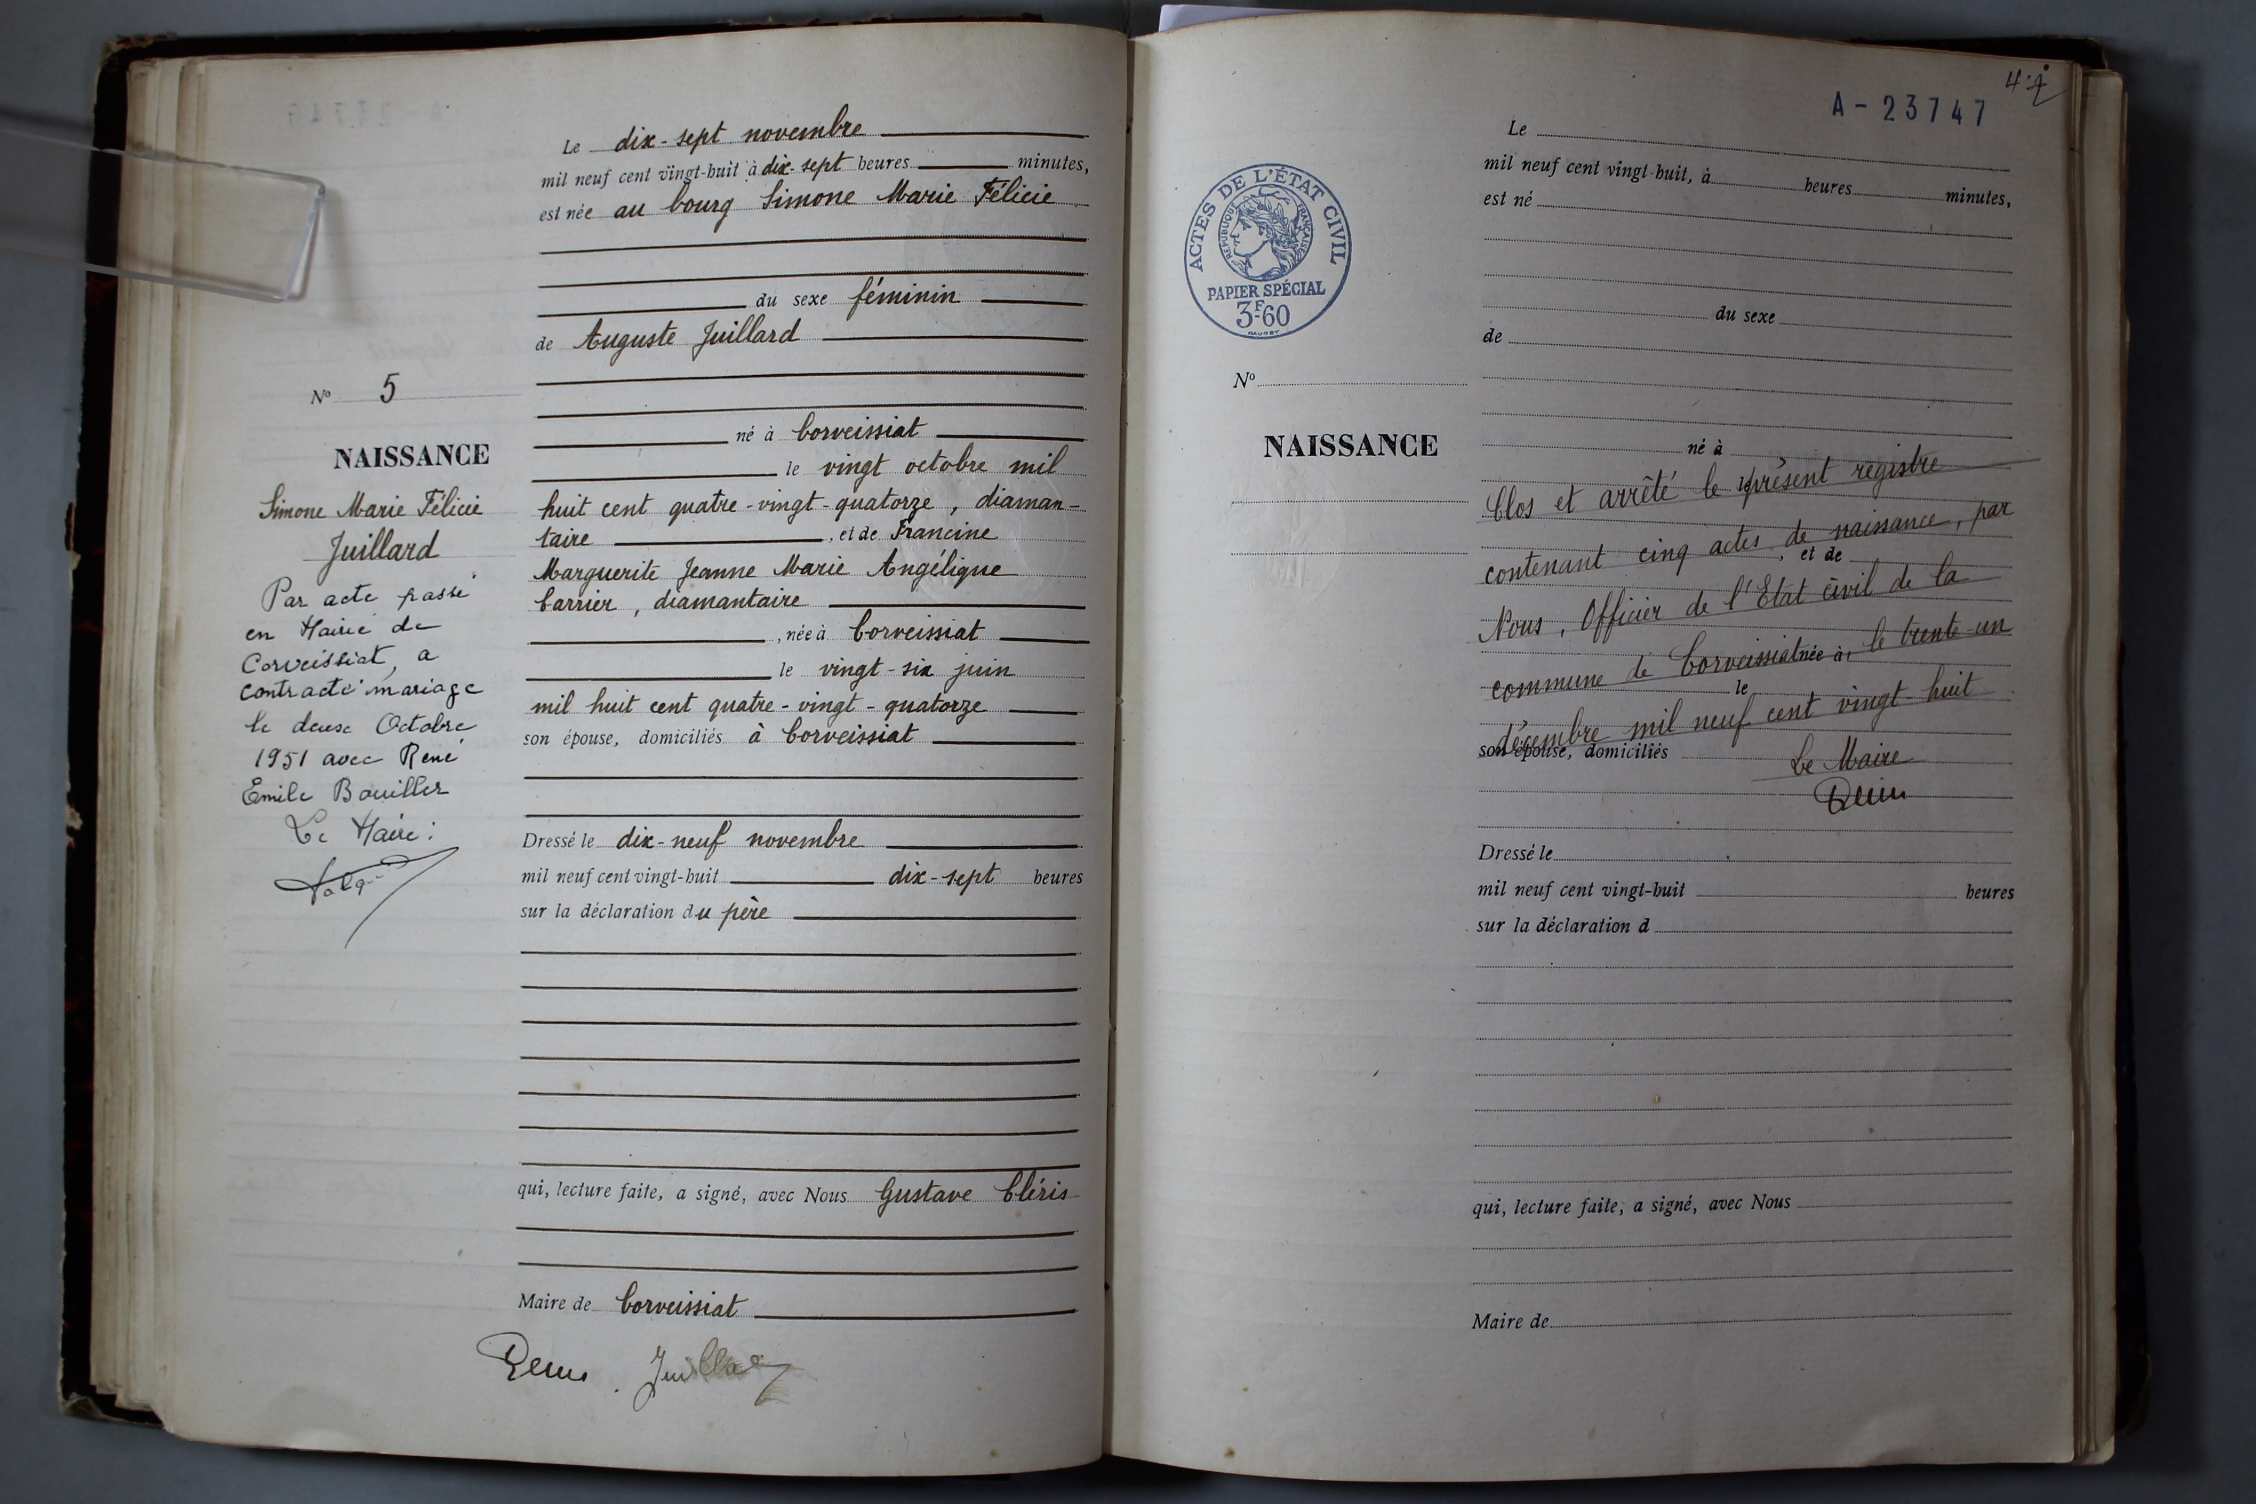 Le dix-sept novembre
mil neuf cent vingt-huit à dix-sept heures minutes,
est née au bourg Simone Marie Félicie
du sexe féminin
de Auguste Juillard
né à Corveissiat
le vingt octobre mil
huit cent quatre-vingt-quatorze, diaman-
taire, et de Francine
Marguerite Jeanne Marie Angélique
Carrier, diamantaire
, née à Corveissiat
le vingt-six juin
mil huit cent quatre-vingt-quatorze
son épouse, domiciliés à Corveissiat
Dressé le dix-neuf novembre
mil neuf cent vingt-huit dix-sept heures
sur la déclaration du père
qui, lecture faite, a signé, avec Nous Gustave Cléris
Maire de Corveissiat
Juillard
No 5
NAISSANCE
Simone Marie Félicie
Juillard
Par acte passé
en Mairie de
Corveissiat, a
contracté mariage
le deux Octobre
1951 avec René
Emile Bouiller
Le Maire:
A-23747
ACTES DE L'ÉTAT CIVIL
RÉPUBLIQUE FRANÇAISE
PAPIER SPÉCIAL
3F60
No
NAISSANCE
Le
mil neuf cent vingt-huit, à heures minutes,
est né
du sexe
de
né à
le
Clos et arrêté le présent registre
contenant cinq actes de naissance, par
, et de
Nous, Officier de l'Etat civil de la
commune de Corveissiat, le trente-un
née à
le
décembre mil neuf cent vingt-huit
son épouse, domiciliés
Le Maire
Dressé le
mil neuf cent vingt-huit heures
sur la déclaration d
qui, lecture faite, a signé, avec Nous
Maire de